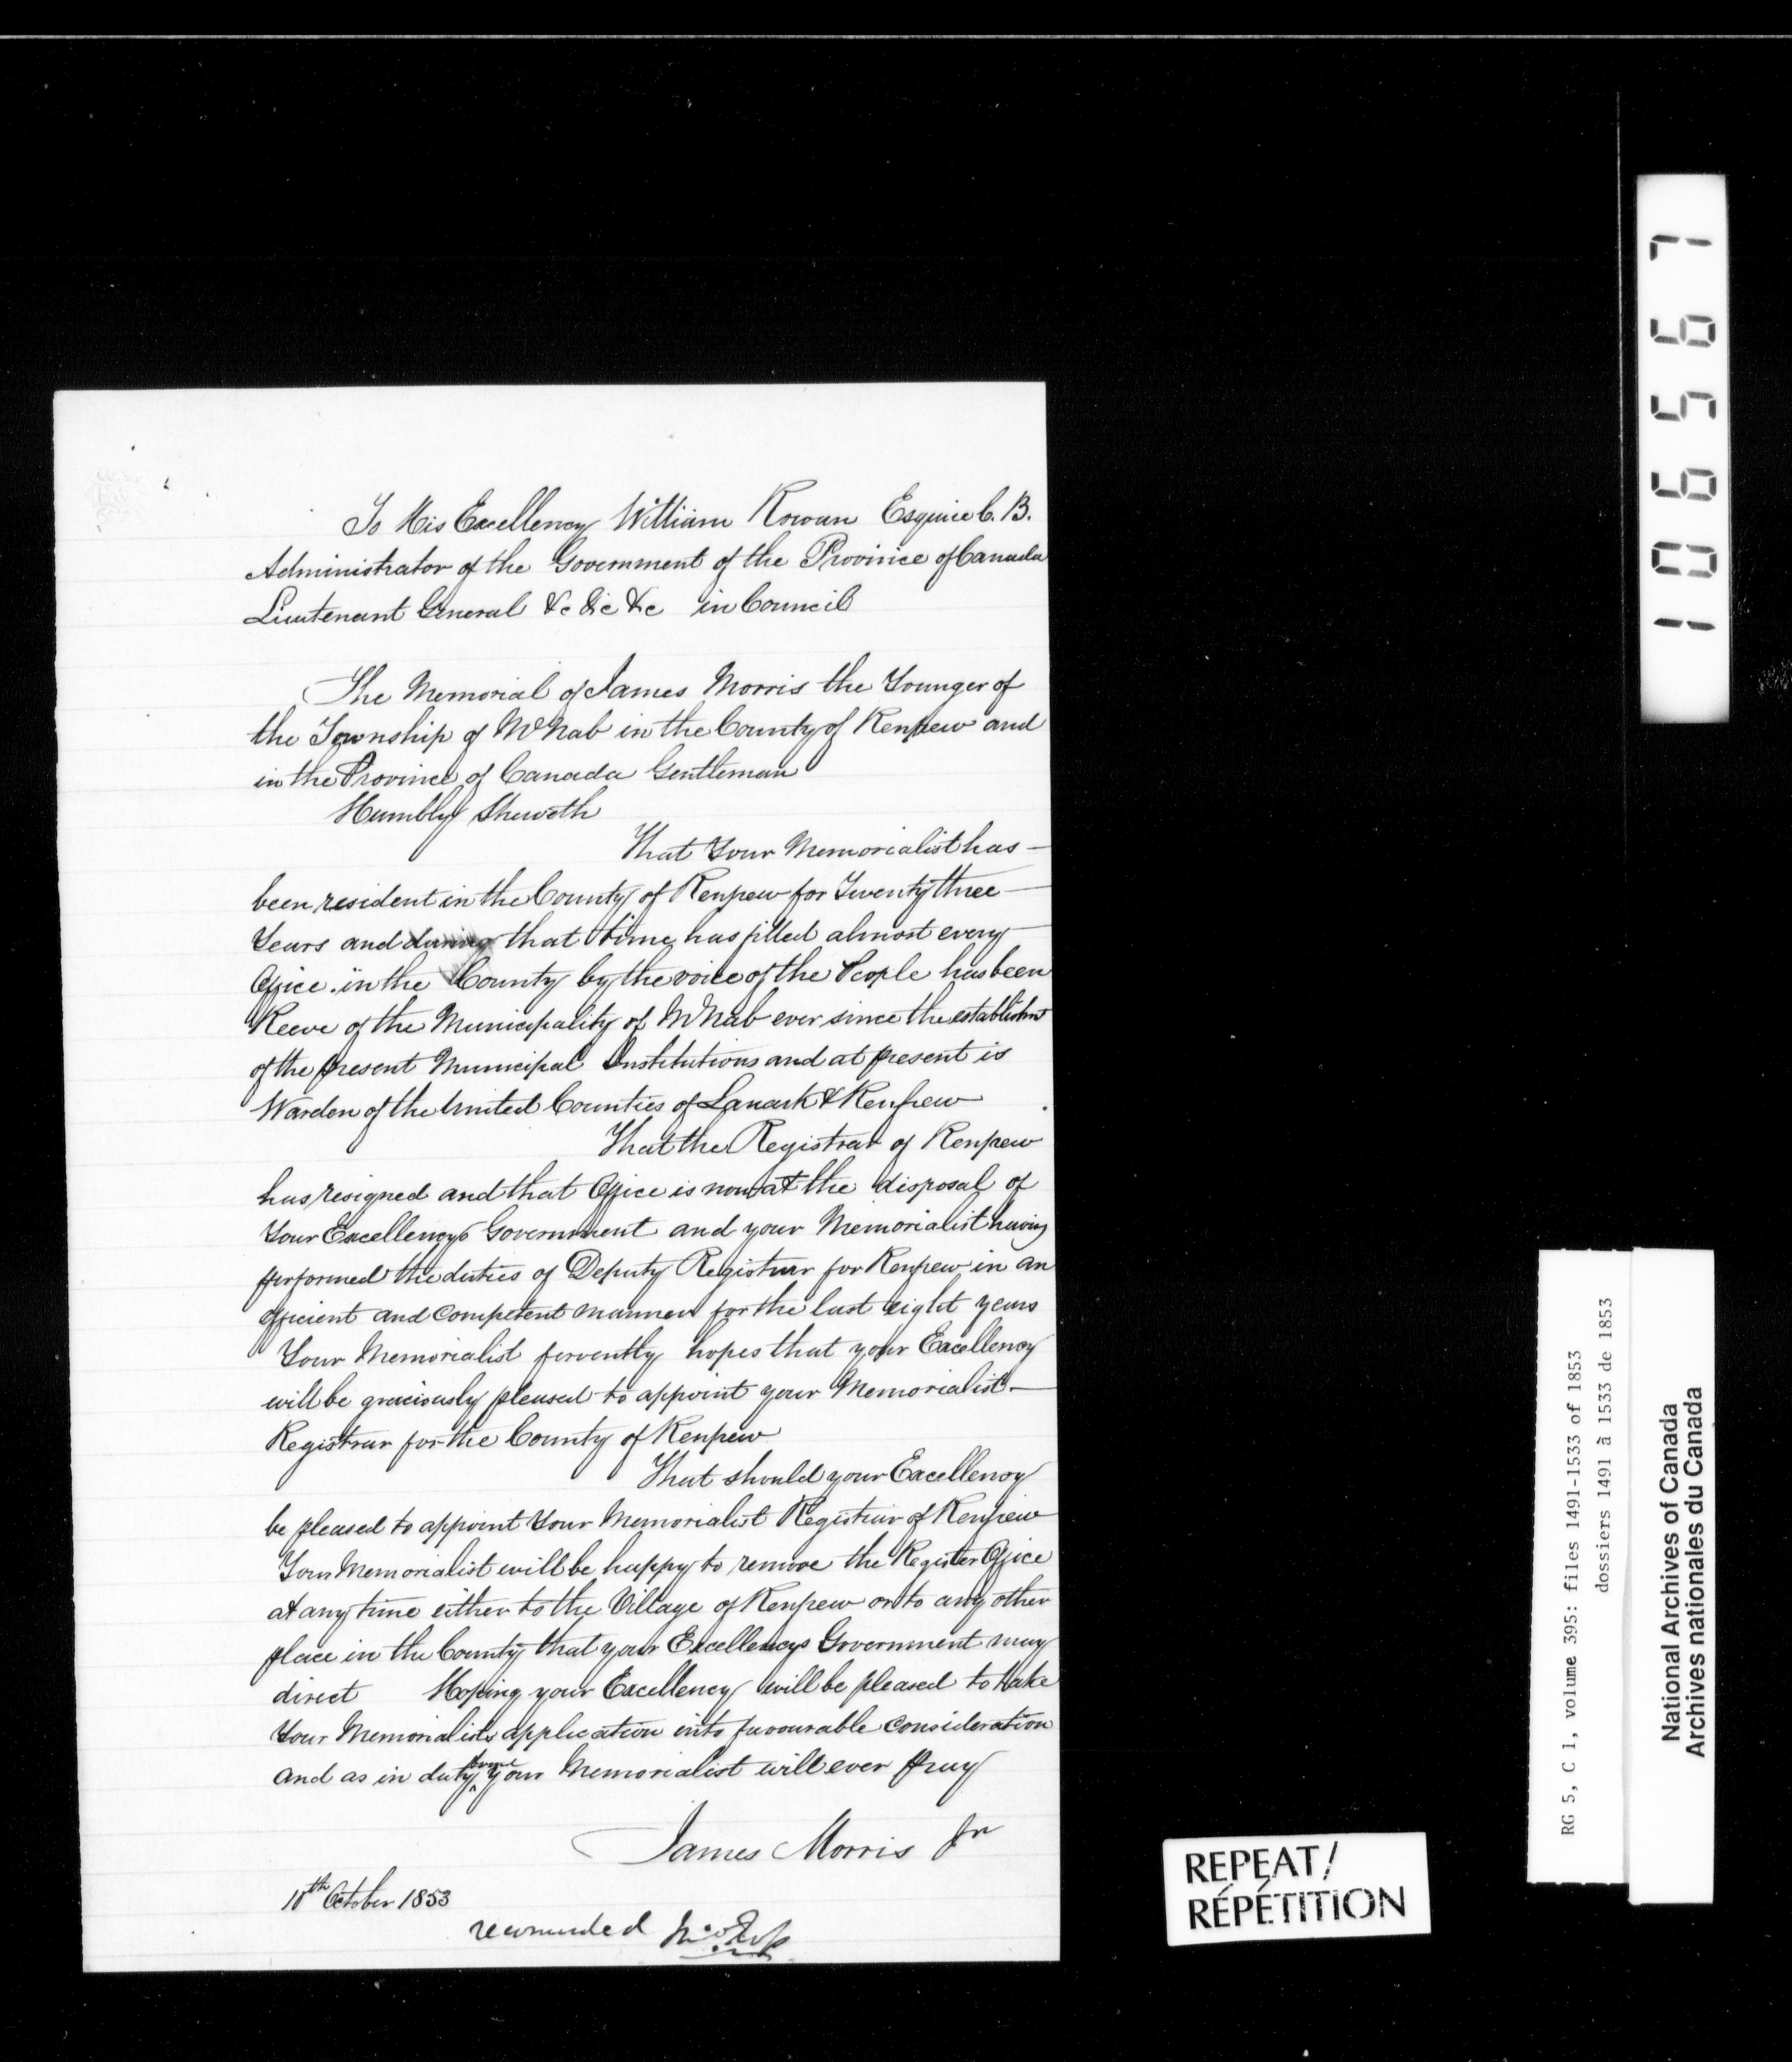 To His Excellency William Rowan Esquire C. B.
Administrator of the Government of the Province of Canada
Lieutenant General &c &c &c in Council
The Memorial of James Morris the Younger of
the Township of McNab in the County of Renfrew and
in the Province of Canada Gentleman
Humbly Sheweth
That Your Memorialist has
been resident in the County of Renfrew for Twenty three
Years and during that time has filled almost every
Office in the County by the voice of the People has been
Reeve of the Municipality of McNab ever since the establishmt
of the present Municipal Institutions and at present is
Warden of the United Counties of Lanark & Renfrew
That the Registrar of Renfrew
has resigned and that Office is now at the disposal of
Your Excellencys Government and your Memorialist having
performed the duties of Deputy Registrar for Renfrew in an
efficient and competent manner for the last eight years
Your Memorialist fervently hopes that your Excellency
will be graciously pleased to appoint your Memorialist
Registrar for the County of Renfrew
That should your Excellency
be pleased to appoint Your Memorialist Registrar of Renfrew
Your Memorialist will be happy to remove the Register Office
at any time either to the Village of Renfrew or to any other
place in the County that your Excellencys Government may
direct Hoping your Excellency will be pleased to take
Your Memorialists application into favourable consideration
and as in duty bound your Memorialist will ever pray
James Morris Jr
10th October 1853
106567
RG 5, C 1, volume 395: files 1491-1533 of 1853
dossiers 1491 à 1533 de 1853
National Archives of Canada
Archives nationales du Canada
REPEAT/
RÉPÉTITION